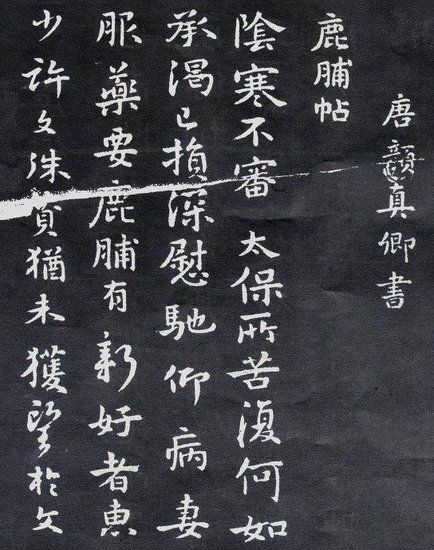 唐顏真卿書
鹿脯帖
陰寒不審太保所苦復何如
承渴已損深慰馳仰病妻
服藥要鹿脯有新好者惠
少許文殊猶未獲望於文